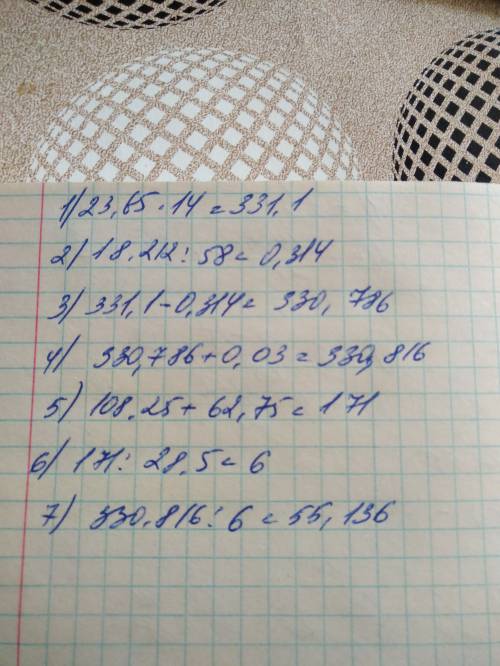 1) 23,65 · 14 = 331,1
2) 18.212 : 58 = 0,314
3) 331,1 - 0,314 = 330,786
4) 330,786 + 0,03 = 330,816
5) 108.25 + 62,75 = 171
6) 171 : 28,5 = 6
7) 330.816 : 6 = 55,136